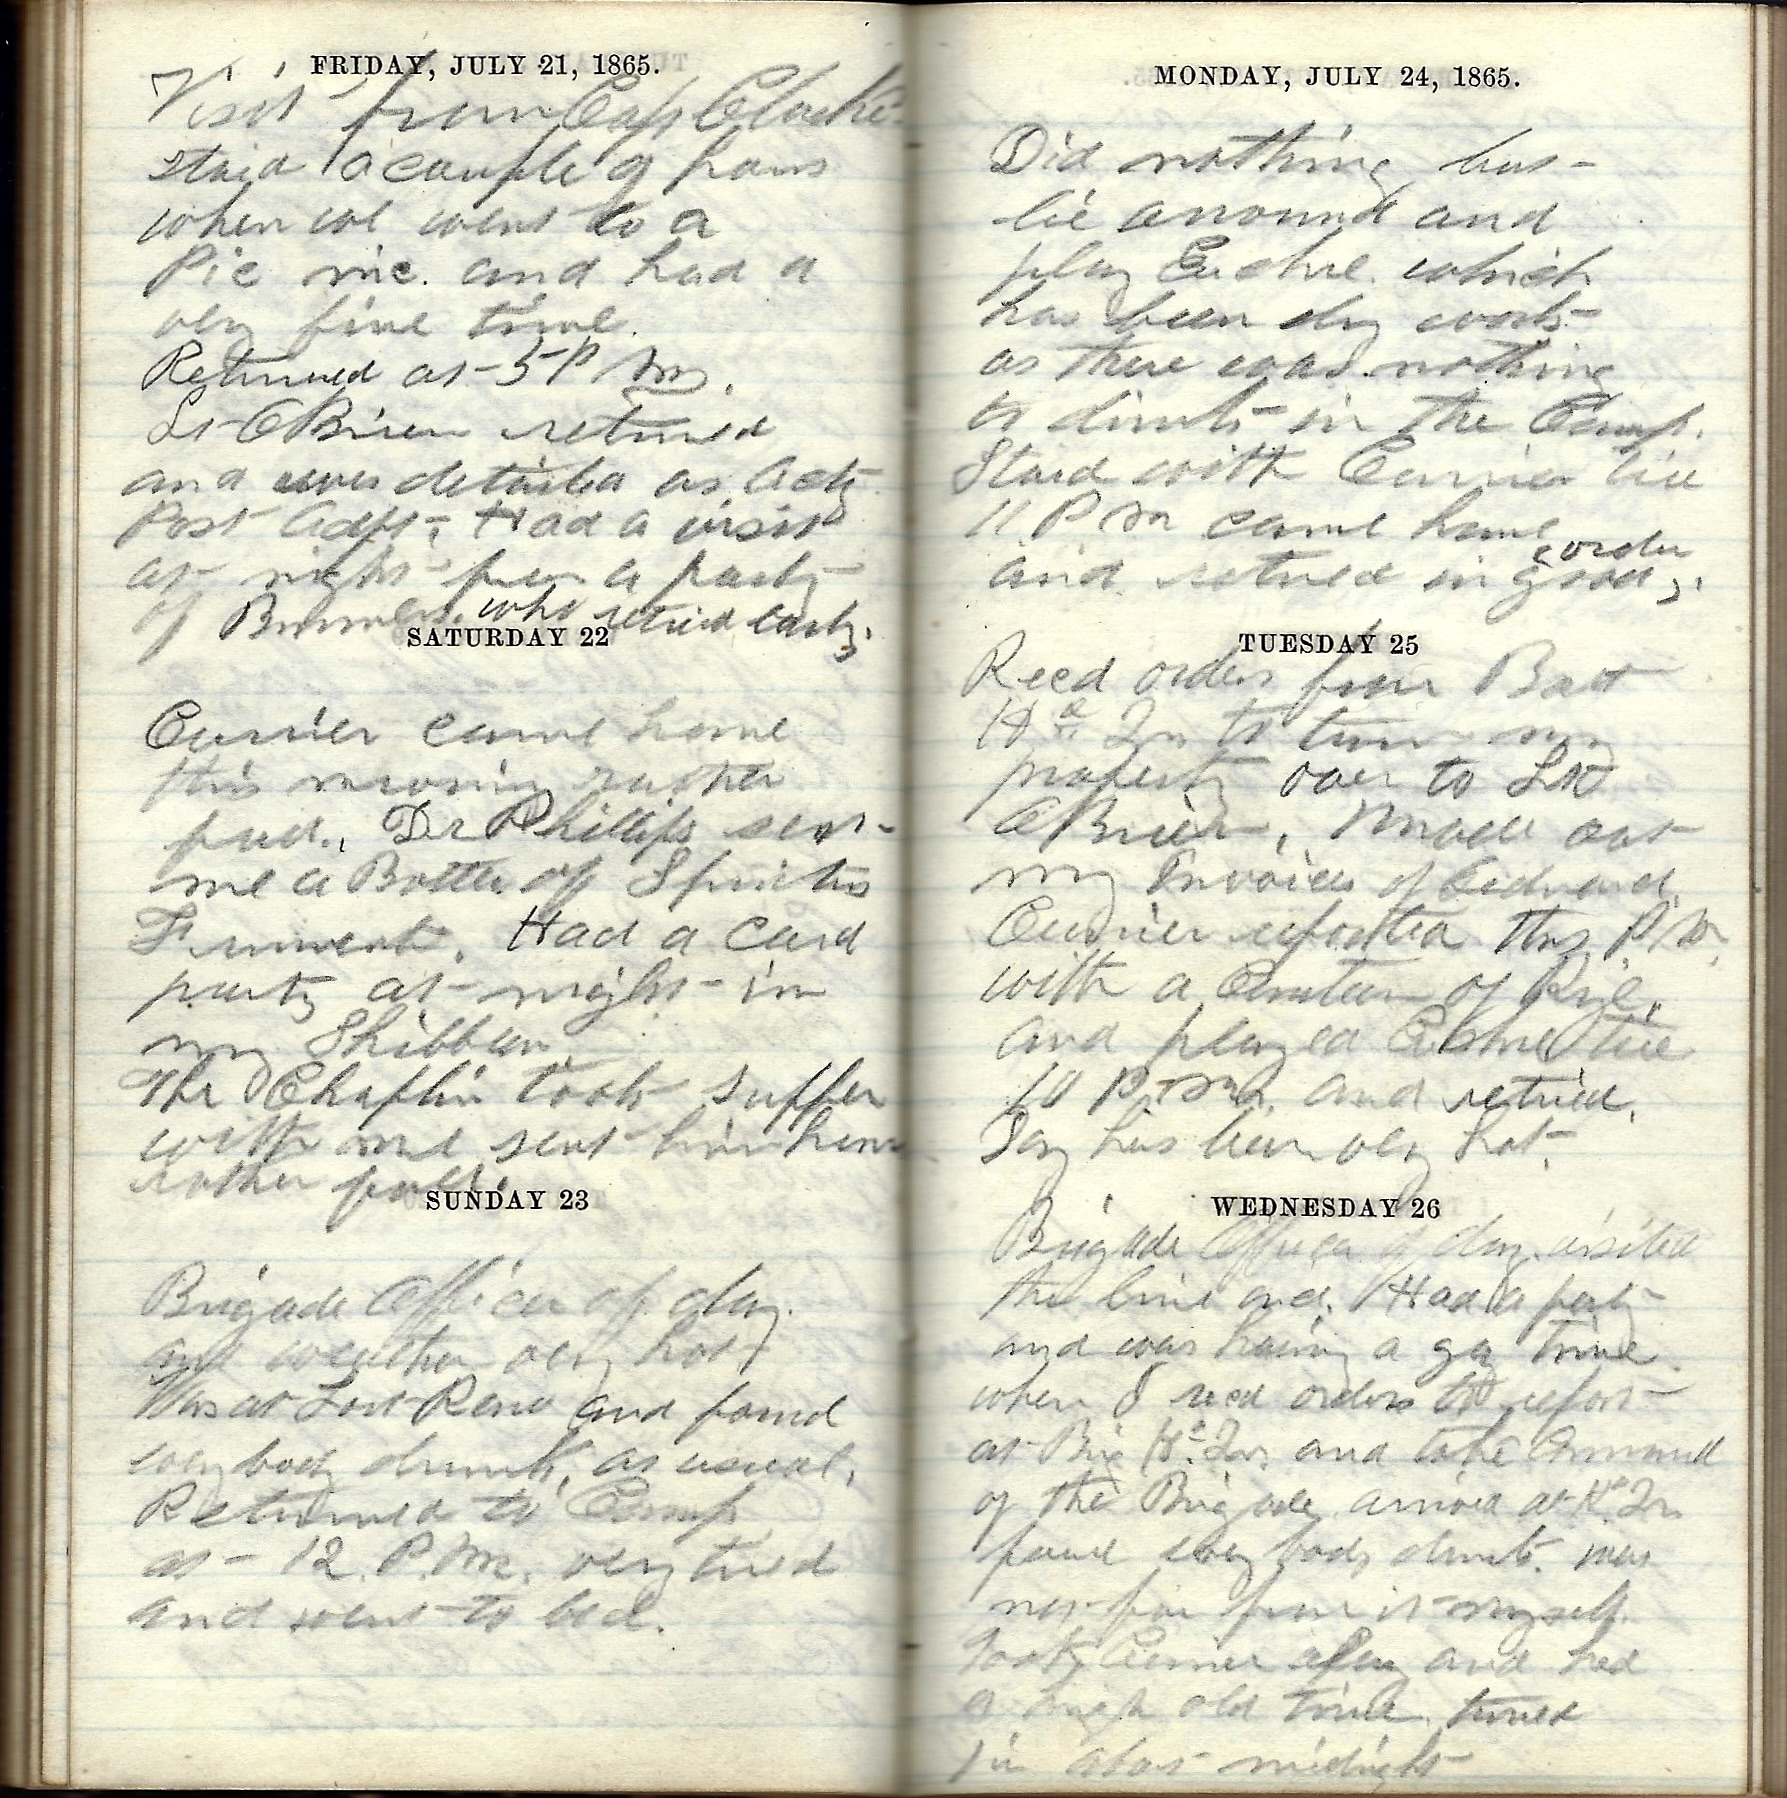 FRIDAY, JULY 21, 1865.
Visit from Capt Clarke
staid a couple of hours
when we went to a
Pic nic. and had a
very fine time.
Returned at 5 P M.
Lt OBrien retired
and was detailed as Actg
Post Adjt. Had a visit
at night from a party
of Bummers. who retired early.
SATURDAY 22
Currier came home
this morning rather
full. Dr Phillips sent
me a Bottle of Spiritus
Frumenti. Had a Card
party at night in
my Shibban
The Chaplin took supper
with me sent him home
rather full.
SUNDAY 23
Brigade Officer of day.
and weather very hot
Was at Fort Reno and found
every body drunk, as usual.
Returned to Camp
at 12 P.M. very tired
and went to bed.
MONDAY, JULY 24, 1865.
Did nothing but
lie around and
play Euchre. which
has been dry work
as there was nothing
to drink in the Camp.
Staid with Currier till
11 P M came home
and retired in good order.
TUESDAY 25
Recd orders from Batt
Hd Qrs to turn my
property over to Lt
OBrien. Made out
my Invoices of
Currier reported this P M.
with a Canteen of Rye.
and played Euchre till
10 P.M. and retired.
Day has been very hot.
WEDNESDAY 26
Brigade Officer of day. visited
the line and. Had a party
and was having a gay time
when I recd orders to report
at Brig Hd Qrs and take Command
of the Brigade arrived at Hd Qrs
found every body drunk. was
not far from it myself.
Took Currier along and had
a high old time. turned
in about midnight